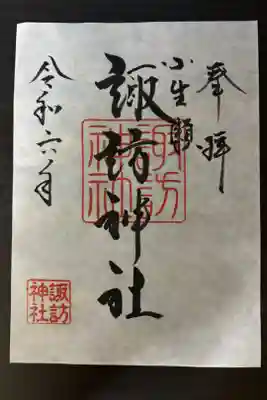 奉拝
小生瀬
諏訪神社
令和六年
諏訪
神社